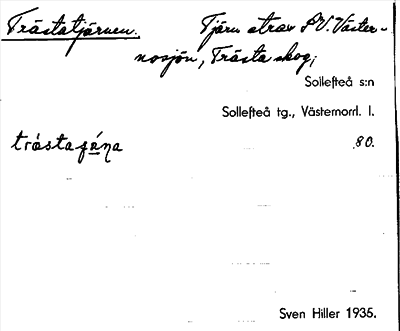 Trästatjärnen. Tjärn strax S.V. Väster-
nosjön, Trästa skog,
Sollefteå s:n
Sollefteå tg., Västernorrl. l.
80.
Sven Hiller 1935.